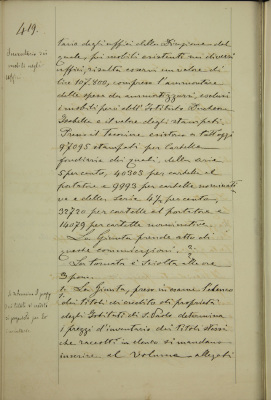 419.
Inventario dei
mobili negli
uffici
tario degli uffici della Direzione del
quale, fra mobili esistenti nei diversi
uffici, risulta esservi un valore di
lire 107.800, compreso l'ammontare
delle spese da ammortizzarsi, esclusi
i mobili però dell'Istituto Duchessa
Isabella e il valore degli stampati.
Presso il Tesoriere esistono a tutt'oggi
97095 stampati per Cartelle
fondiarie dei quali, della serie
5 per cento, 40303 per cartelle al
portatore e 9993 per cartelle nominati
ve e della serie 4½ per cento,
32720 per cartelle al portatore e
14079 per cartelle nominative.
La Giunta prende atto di
queste comunicazioni.
La tornata è sciolta alle ore
3 pom.
La Giunta, preso in esame l'elenco
dei titoli di credito di proprietà
degli Istituti di S. Paolo determina
i prezzi d'inventario dei titoli stessi
che raccolti in elenco si mandano
inserire al Volume allegati